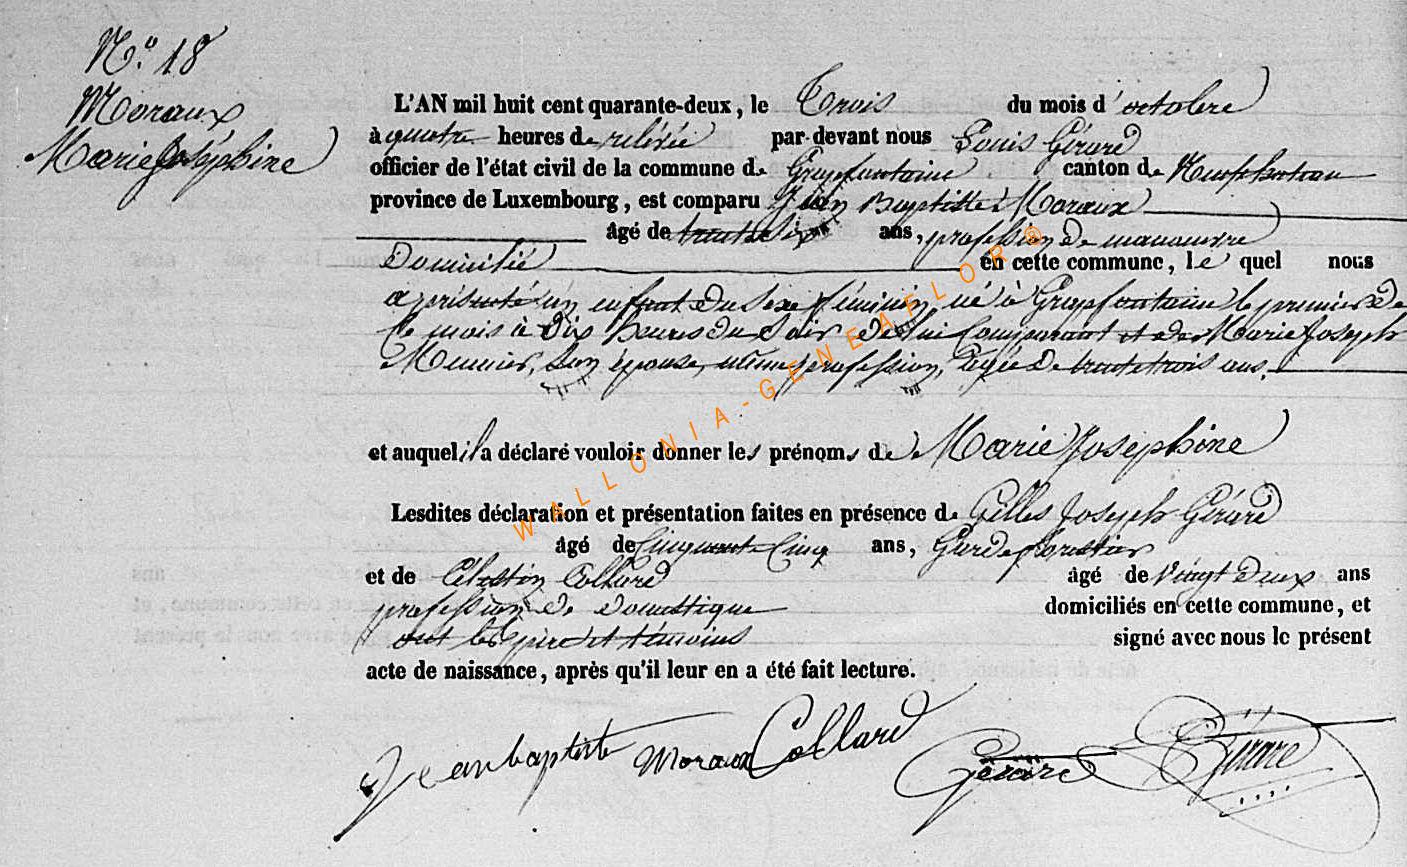 N.° 18
Moraux
Marie Joséphine
L'AN mil huit cent quarante-deux, le Trois du mois d'octobre
à quatre heures de relévée par-devant nous Louis Gérard
officier de l'état civil de la commune de Grapfontaine canton de Neufchateau
province de Luxembourg, est comparu Jean Baptiste Moraux
âgé de trente six ans, profession de manoeuvre
Domicilié en cette commune, le quel nous
a présenté un enfant du Sexe féminin, né à Grapfontaine le premier de
ce mois à Dix heures du Soir de lui Comparant et de Marie Joseph
Meunier, Son épouse, même profession, agée de trente trois ans.
et auquel il a déclaré vouloir donner les prénoms de Marie Joséphine
Lesdites déclaration et présentation faites en présence de Gilles Joseph Gérard
âgé de Cinquante Cinq ans, Garde forestier
et de Célestin Collard âgé de Vingt Deux ans
profession de domestique domiciliés en cette commune, et
ont les père et témoins signé avec nous le présent
acte de naissance, après qu'il leur en a été fait lecture.
Jean baptiste Moraux Collard Gérard Gérard
WALLONIA-GENEAFLOR®